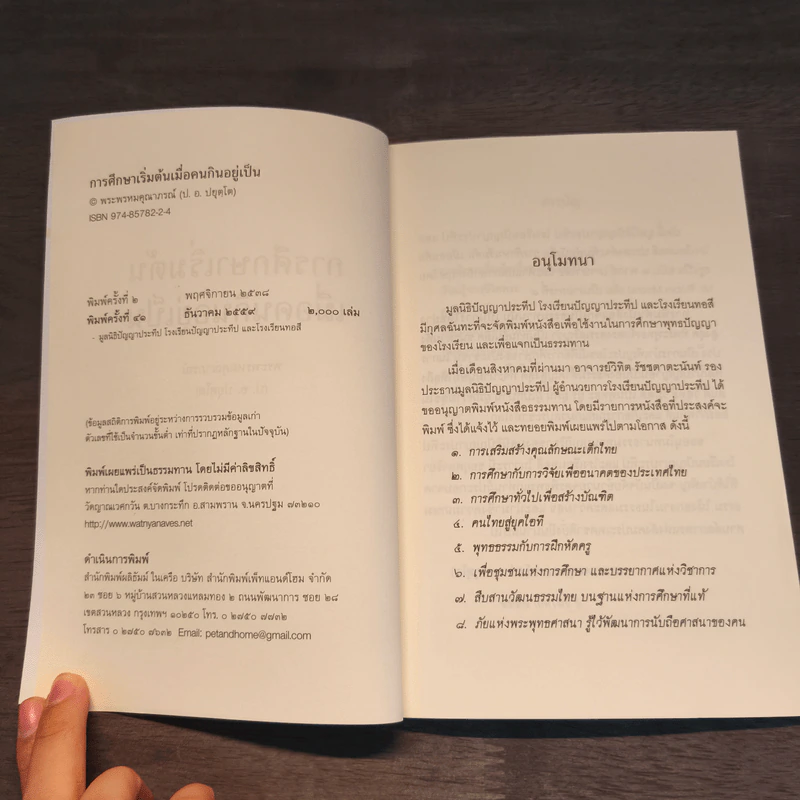 การศึกษาเริ่มต้นเมื่อคนกินอยู่เป็น
© พระพรหมคุณาภรณ์ (ป. อ. ปยุตฺโต)
ISBN 974-85782-2-4
พิมพ์ครั้งที่ ๒ พฤศจิกายน ๒๕๓๘
พิมพ์ครั้งที่ ๔๑ ธันวาคม ๒๕๕๙ ๒,๐๐๐ เล่ม
- มูลนิธิปัญญาประทีป โรงเรียนปัญญาประทีป และโรงเรียนทอสี
(ข้อมูลสถิติการพิมพ์อยู่ระหว่างการรวบรวมข้อมูลเก่า
ตัวเลขที่ใช้เป็นจำนวนขั้นต่ำ เท่าที่ปรากฏหลักฐานในปัจจุบัน)
พิมพ์เผยแพร่เป็นธรรมทาน โดยไม่มีค่าลิขสิทธิ์
หากท่านใดประสงค์จัดพิมพ์ โปรดติดต่อขออนุญาตที่
วัดญาณเวศกวัน ต.บางกระทึก อ.สามพราน จ.นครปฐม ๗๓๒๑๐
http://www.watnyanaves.net
ดำเนินการพิมพ์
สำนักพิมพ์ผลิธัมม์ ในเครือ บริษัท สำนักพิมพ์เพ็ทแอนด์โฮม จำกัด
๒๓ ซอย ๖ หมู่บ้านสวนหลวงแหลมทอง ๒ ถนนพัฒนาการ ซอย ๒๘
เขตสวนหลวง กรุงเทพฯ ๑๐๒๕๐ โทร. ๐ ๒๗๕๐ ๗๗๓๒
โทรสาร ๐ ๒๗๕๐ ๗๖๓๒ Email: petandhome@gmail.com
อนุโมทนา
มูลนิธิปัญญาประทีป โรงเรียนปัญญาประทีป และโรงเรียนทอสี
มีกุศลฉันทะที่จะจัดพิมพ์หนังสือเพื่อใช้งานในการศึกษาพุทธปัญญา
ของโรงเรียน และเพื่อแจกเป็นธรรมทาน
เมื่อเดือนสิงหาคมที่ผ่านมา อาจารย์วิทิต รัชชตาตะนันท์ รอง
ประธานมูลนิธิปัญญาประทีป ผู้อำนวยการโรงเรียนปัญญาประทีป ได้
ขออนุญาตพิมพ์หนังสือธรรมทาน โดยมีรายการหนังสือที่ประสงค์จะ
พิมพ์ ซึ่งได้แจ้งไว้ และทยอยพิมพ์เผยแพร่ไปตามโอกาส ดังนี้
๑. การเสริมสร้างคุณลักษณะเด็กไทย
๒. การศึกษากับการวิจัยเพื่ออนาคตของประเทศไทย
๓. การศึกษาทั่วไปเพื่อสร้างบัณฑิต
๔. คนไทยสู่ยุคไอที
๕. พุทธธรรมกับการฝึกหัดครู
๖. เพื่อชุมชนแห่งการศึกษา และบรรยากาศแห่งวิชาการ
๗. สืบสานวัฒนธรรมไทย บนฐานแห่งการศึกษาที่แท้
๘. ภัยแห่งพระพุทธศาสนา รู้ไว้พัฒนาการนับถือศาสนาของคน